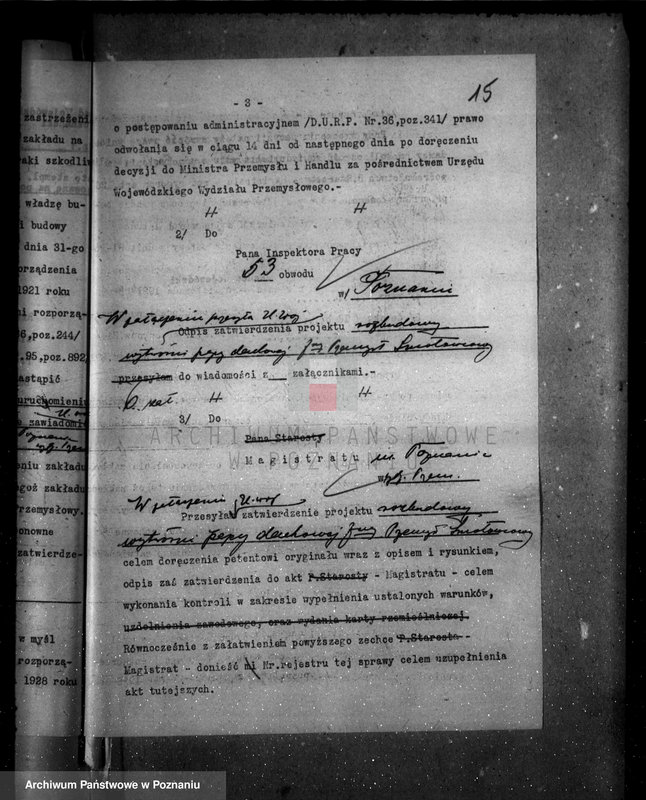 15
- 3 -
o postępowaniu administracyjnem /D.U.R.P. Nr.36,poz.341/ prawo
odwołania się w ciągu 14 dni od następnego dnia po doręczeniu
decyzji do Ministra Przemysłu i Handlu za pośrednictwem Urzędu
Wojewódzkiego Wydziału Przemysłowego.-
2/ Do
Pana Inspektora Pracy
53 obwodu
w/ Poznaniu
Odpis zatwierdzenia projektu rozbudowy
wytwórni papy dachowej
przesyłam do wiadomości z załącznikami.-
3/ Do
Pana Starosty
Magistratu m. Poznania
Przesyłam zatwierdzenie projektu rozbudowy
wytwórni papy dachowej
celem doręczenia petentowi oryginału wraz z opisem i rysunkiem,
odpis zaś zatwierdzenia do akt P.Starosty - Magistratu - celem
wykonania kontroli w zakresie wypełnienia ustalonych warunków,
uzdolnienia zawodowego, oraz wydania karty rzemieślniczej.
Równocześnie z załatwieniem powyższego zechce P.Starosta -
Magistrat - donieść mi Nr.rejestru tej sprawy celem uzupełnienia
akt tutejszych.
zastrzeżeni
zakładu na
aki szkodliw
władzę bu-
i budowy
dnia 31-go
orządzenia
1921 roku
mi rozporzą-
36,poz.244/
.95,poz.892,
astąpić
uruchomieniu
zawiadomi
eniu zakładu
goż zakładu
rzemysłowy.
onowne
zatwierdze-
w myśl
rozporzą-
1928 roku
ARCHIWUM PAŃSTWOWE
W POZNANIU
Archiwum Państwowe w Poznaniu